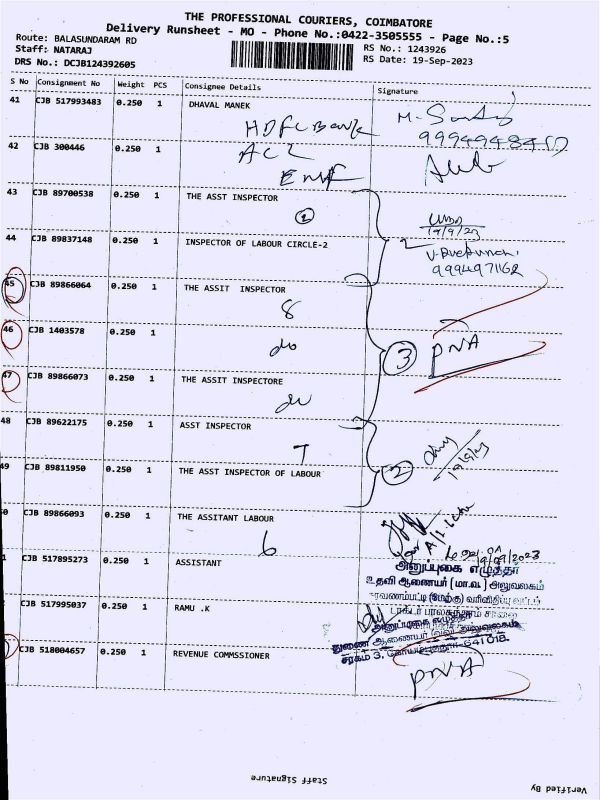 THE PROFESSIONAL COURIERS, COIMBATORE
Delivery Runsheet - MO - Phone No.:0422-3505555 - Page No.:5
Route: BALASUNDARAM RD
RS No.: 1243926
Staff: NATARAJ
RS Date: 19-Sep-2023
DRS No.: DCJB124392605
S No Consignment No Weight PCS Consignee Details Signature
41 CJB 517993483 0.250 1 DHAVAL MANEK
HDFC Bank
42 CJB 300446 0.250 1 ACL
43 CJB 89700538 0.250 1 THE ASST INSPECTOR
19/9/23
44 CJB 89837148 0.250 1 INSPECTOR OF LABOUR CIRCLE-2
9994971162
45 CJB 89866064 0.250 1 THE ASSIT INSPECTOR
8
46 CJB 1403578 0.250 1
do
3 PNA
47 CJB 89866073 0.250 1 THE ASSIT INSPECTORE
do
48 CJB 89622175 0.250 1 ASST INSPECTOR
7
2 19/9/23
49 CJB 89811950 0.250 1 THE ASST INSPECTOR OF LABOUR
0 CJB 89866093 0.250 1 THE ASSITANT LABOUR
6
19/09/2023
1 CJB 517895273 0.250 1 ASSISTANT
அனுப்புகை எழுத்தர்
உதவி ஆணையர் (மா.வ.) அலுவலகம்
CJB 517995037 0.250 1 RAMU .K
CJB 518004657 0.250 1 REVENUE COMMSSIONER
PNA
Staff Signature
Verified By